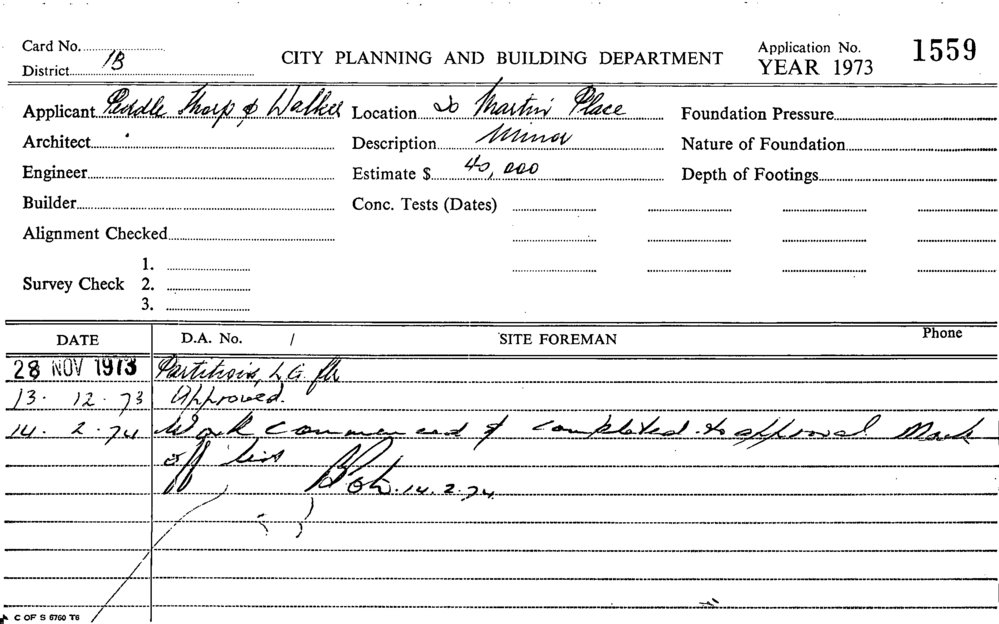 Card No.
District 1B
CITY PLANNING AND BUILDING DEPARTMENT
Application No. 1559
YEAR 1973
Applicant Peddle Thorp & Walker
Location 20 Martin Place
Foundation Pressure
Architect
Description Minor
Nature of Foundation
Engineer
Estimate $ 40,000
Depth of Footings
Builder
Conc. Tests (Dates)
Alignment Checked
Survey Check 1.
2.
3.
DATE D.A. No. / SITE FOREMAN Phone
28 NOV 1973 Partitions, L.G. flr
13. 12. 73 Approved.
14. 2. 74 Work commenced & completed to approval Mark
off list
14.2.74
C OF S 6760 T6